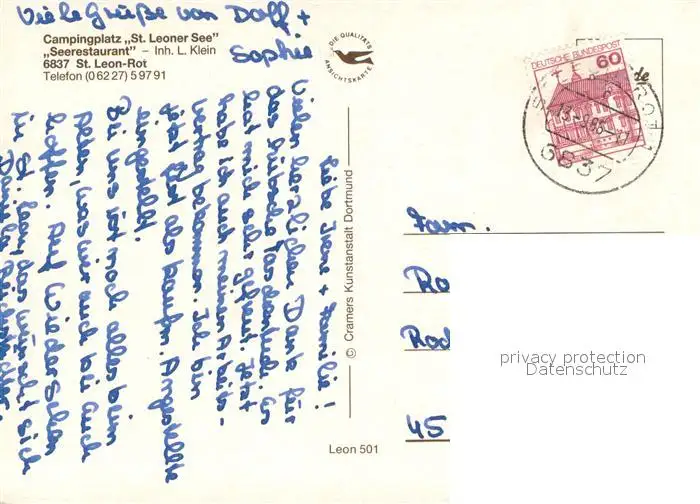 Viele Grüße von Dolf +
Sophie
Campingplatz „St. Leoner See"
„Seerestaurant" – Inh. L. Klein
6837 St. Leon-Rot
Telefon (0 62 27) 5 97 91
DIE QUALITÄTS
ANSICHTSKARTE
Liebe Irene + Familie!
Vielen herzlichen Dank für
das hübsche Taschentuch. Es
hat mich sehr gefreut. Jetzt
habe ich auch meinen Arbeits-
vertrag bekommen. Ich bin
jetzt fest als kaufm. Angestellte
eingestellt.
Bei uns ist noch alles beim
alten, was wir auch bei Euch
hoffen. Auf Wiedersehen
in St. Leon, das wünscht sich
© Cramers Kunstanstalt Dortmund
Leon 501
DEUTSCHE BUNDESPOST
60
6837
Fam.
Ro
Rod
45
privacy protection
Datenschutz